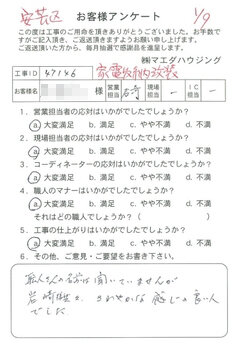 安芸区 お客様アンケート 1/9
この度は工事のご用命を頂きありがとうございました。お手数で
すがご記入頂き、ご返送頂きますようお願い申し上げます。
ご返送頂いた方から、毎月抽選で感謝品を進呈します。
㈱マエダハウジング
工事ID 47146 家電収納改装
様 営業担当 岩崎 現場担当 ー IC担当 ー
1. 営業担当者の応対はいかがでしたでしょうか?
a 大変満足 b. 満足 c. やや不満 d. 不満
2. 現場担当者の応対はいかがでしたでしょうか?
a. 大変満足 b. 満足 c. やや不満 d. 不満
3. コーディネーターの応対はいかがでしたでしょうか?
a. 大変満足 b. 満足 c. やや不満 d. 不満
4. 職人のマナーはいかがでしたでしょうか?
a 大変満足 b. 満足 c. やや不満 d. 不満
それはどの職人でしょうか?( )
5. 工事の仕上がりはいかがでしたでしょうか?
a 大変満足 b. 満足 c. やや不満 d. 不満
6. その他、ご意見・ご要望をお書き下さい。
職人さんの名前は聞いていませんが
岩崎様も、さわやかな感じの良い人
でした